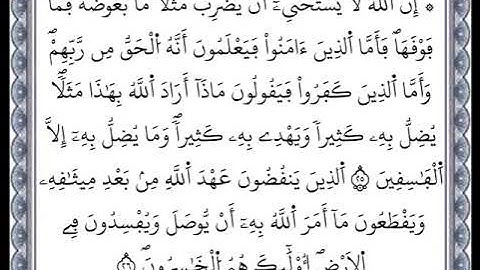 ۞ إِنَّ اَ۬للَّهَ لَا يَسْتَحْيِۦٓ أَنْ يَّضْرِبَ مَثَلاٗ مَّا بَعُوضَةٗ فَمَا
فَوْقَهَاۖ فَأَمَّا اَ۬لذِينَ ءَامَنُواْ فَيَعْلَمُونَ أَنَّهُ اُ۬لْحَقُّ مِن رَّبِّهِمْۖ
وَأَمَّا اَ۬لذِينَ كَفَرُواْ فَيَقُولُونَ مَاذَآ أَرَادَ اَ۬للَّهُ بِهَٰذَا مَثَلاٗۖ
يُضِلُّ بِهِۦ كَثِيراٗ وَيَهْدِے بِهِۦ كَثِيراٗۖ وَمَا يُضِلُّ بِهِۦٓ إِلَّا
اَ۬لْفَٰسِقِينَ ۝٢٥ اَ۬لذِينَ يَنقُضُونَ عَهْدَ اَ۬للَّهِ مِنۢ بَعْدِ مِيثَٰقِهِۦ
وَيَقْطَعُونَ مَآ أَمَرَ اَ۬للَّهُ بِهِۦٓ أَنْ يُّوصَلَ وَيُفْسِدُونَ فِے
اِ۬لَارْضِۖ أُوْلَٰٓئِكَ هُمُ اُ۬لْخَٰسِرُونَۖ ۝٢٦